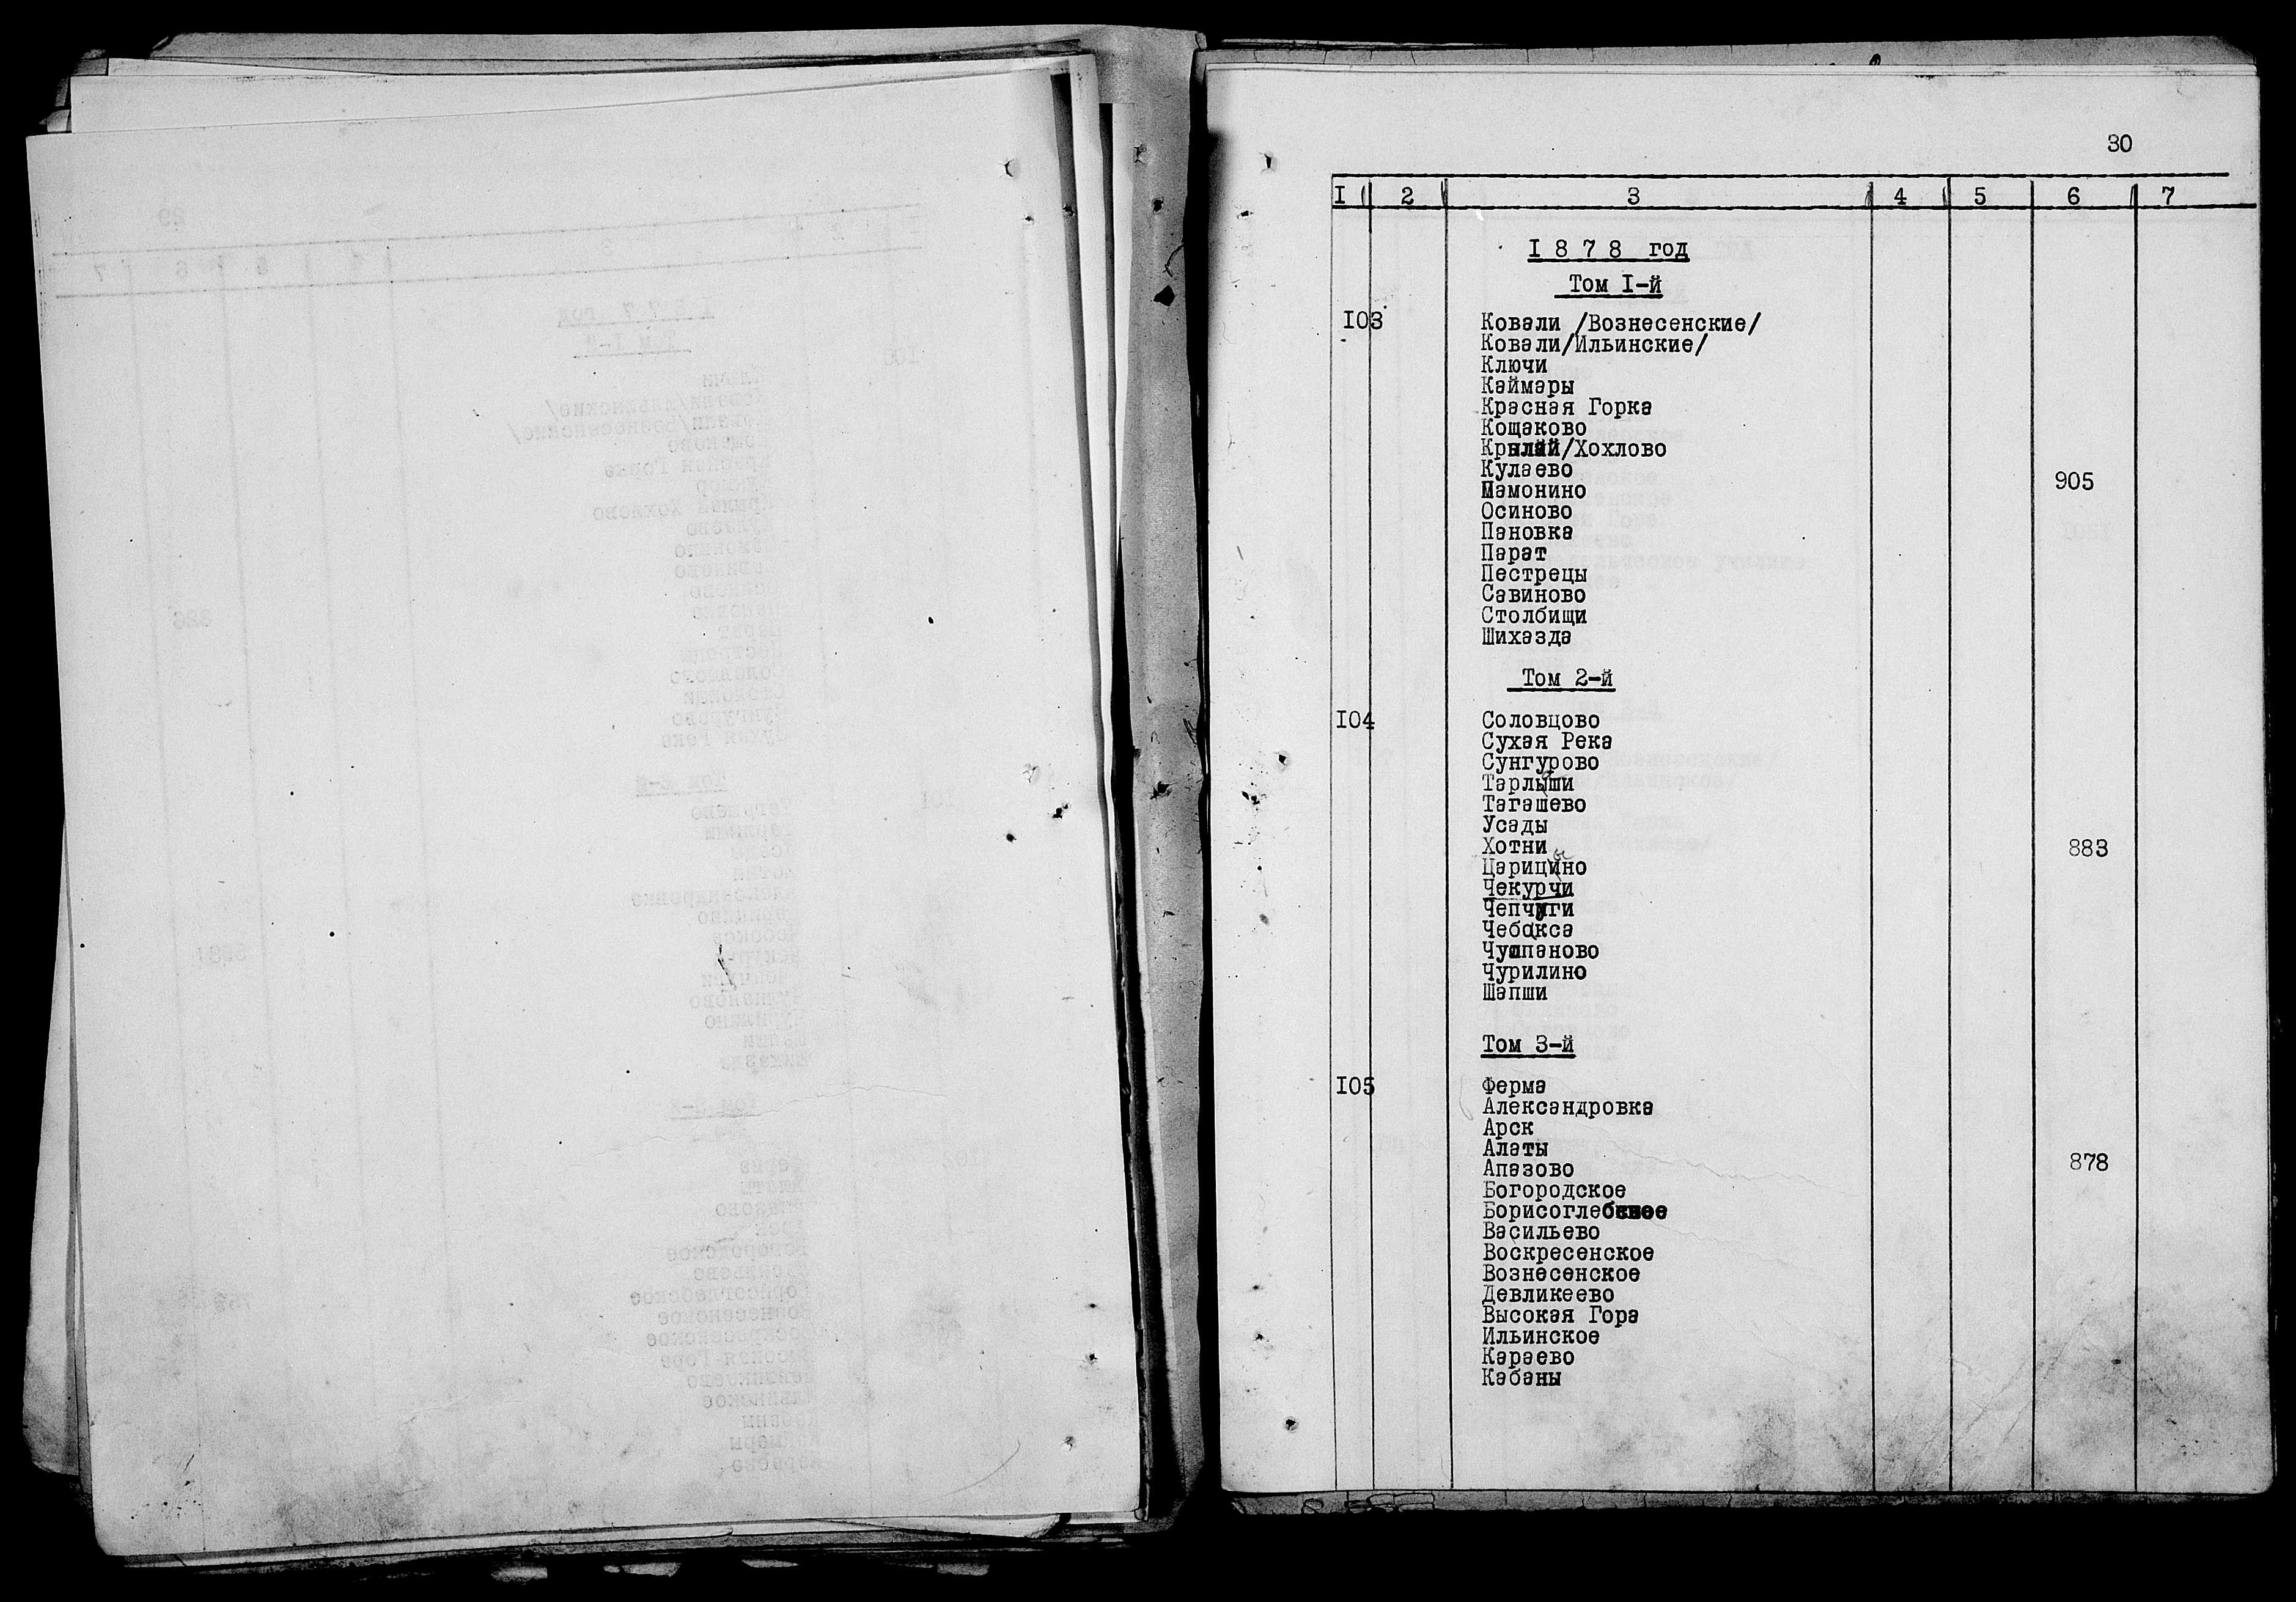 30
I 2 3 4 5 6 7
1878 год
Том I-й
I03 Ковали /Вознесенские/
Ковали/Ильинские/
Ключи
Каймары
Красная Горка
Кощаково
/Хохлово
Кулаево
Мамонино 905
Осиново
Пановка
Парат
Пестрецы
Савиново
Столбищи
Шихазда
Том 2-й
I04 Соловцово
Сухая Река
Сунгурово
Тарлаши
Тагашево
Усады
Хотни 883
Царицыно
Чекурчи
Чепчуги
Чебокса
Чулпаново
Чурилино
Шапши
Том 3-й
I05 Ферма
Александровка
Арск
Алаты
Апазово 878
Богородское
Борисоглебское
Васильево
Воскресенское
Вознесенское
Девликеево
Высокая Гора
Ильинское
Караево
Кабаны